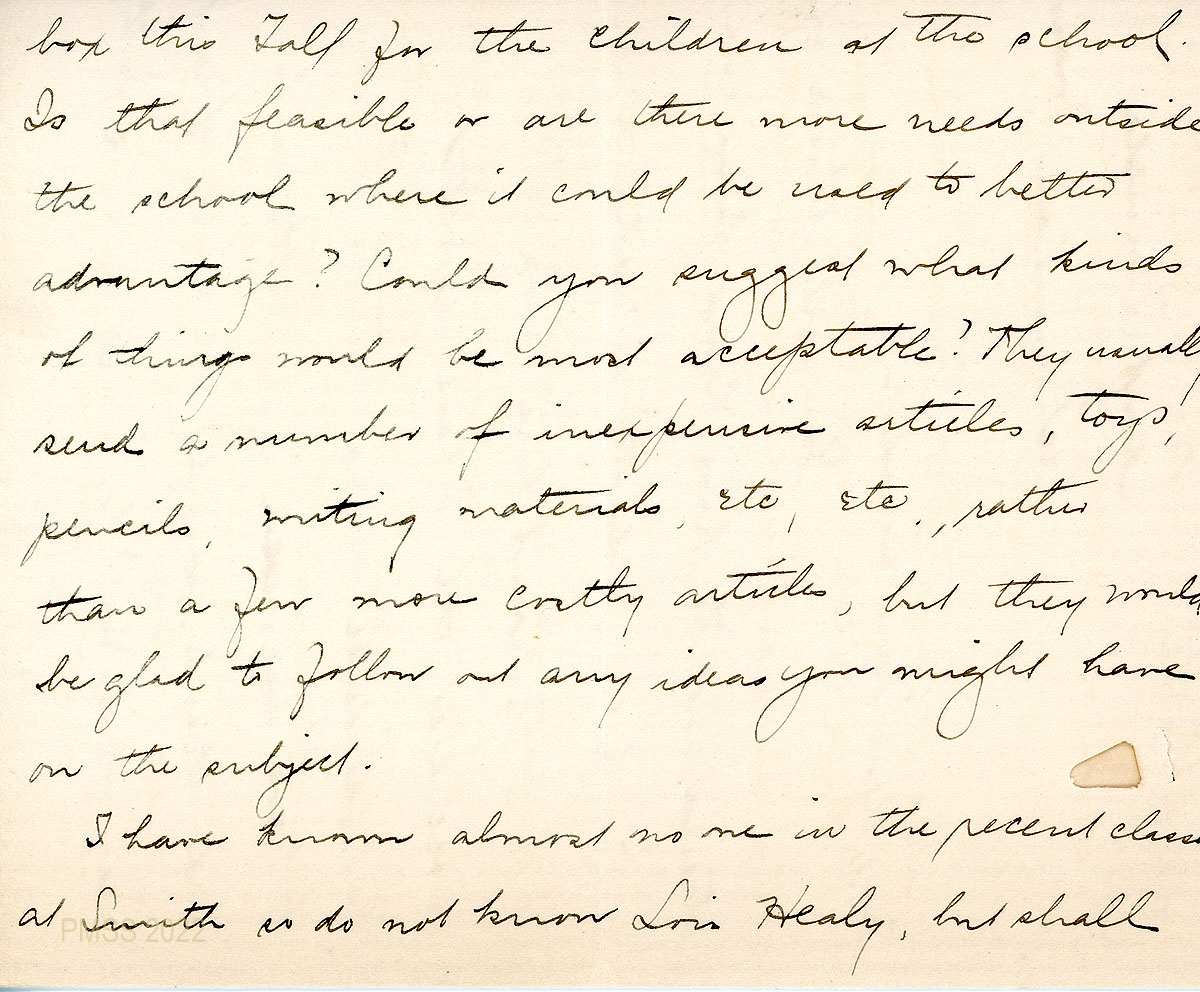 box this Fall for the children at the school.
Is that feasible or are there more needs outside
the school where it could be used to better
advantage? Could you suggest what kinds
of things would be most acceptable? They usually
send a number of inexpensive articles, toys,
pencils, writing materials, etc, etc., rather
than a few more costly articles, but they would
be glad to follow out any ideas you might have
on the subject.
I have known almost no one in the recent classes
at Smith so do not know Lois Healy, but shall
PMSS 2022